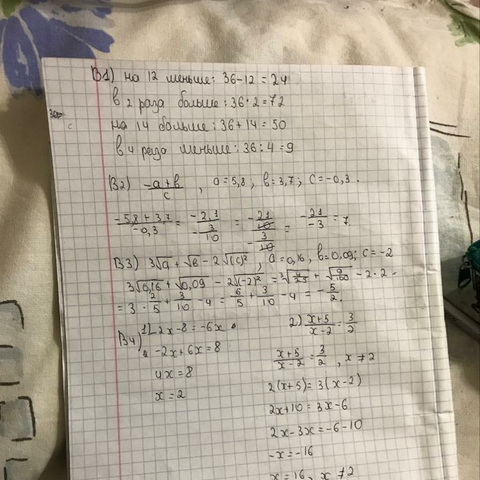 В1) на 12 меньше: 36-12=24
в 2 раза больше: 36·2=72
на 14 больше: 36+14=50
в 4 раза меньше: 36:4=9
В2) (-a+b)/c, a=5,8; b=3,7; c=-0,3.
(-5,8+3,7)/(-0,3) = (-2,1)/(-3/10) = (-21/10)/(-3/10) = -21/-3 = 7
В3) 3√a + √b - 2√(c)², a=0,16, b=0,09; c=-2
3√0,16 + √0,09 - 2√(-2)² = 3√4/25 + √9/100 - 2·2 =
= 3·2/5 + 3/10 - 4 = 6/5 + 3/10 - 4 = -5/2.
В4) 1) -2x-8=-6x
-2x+6x=8
4x=8
x=2
2) (x+5)/(x-2) = 3/2
(x+5)/(x-2) = 3/2, x≠2
2(x+5)=3(x-2)
2x+10=3x-6
2x-3x=-6-10
-x=-16
x=16, x≠2